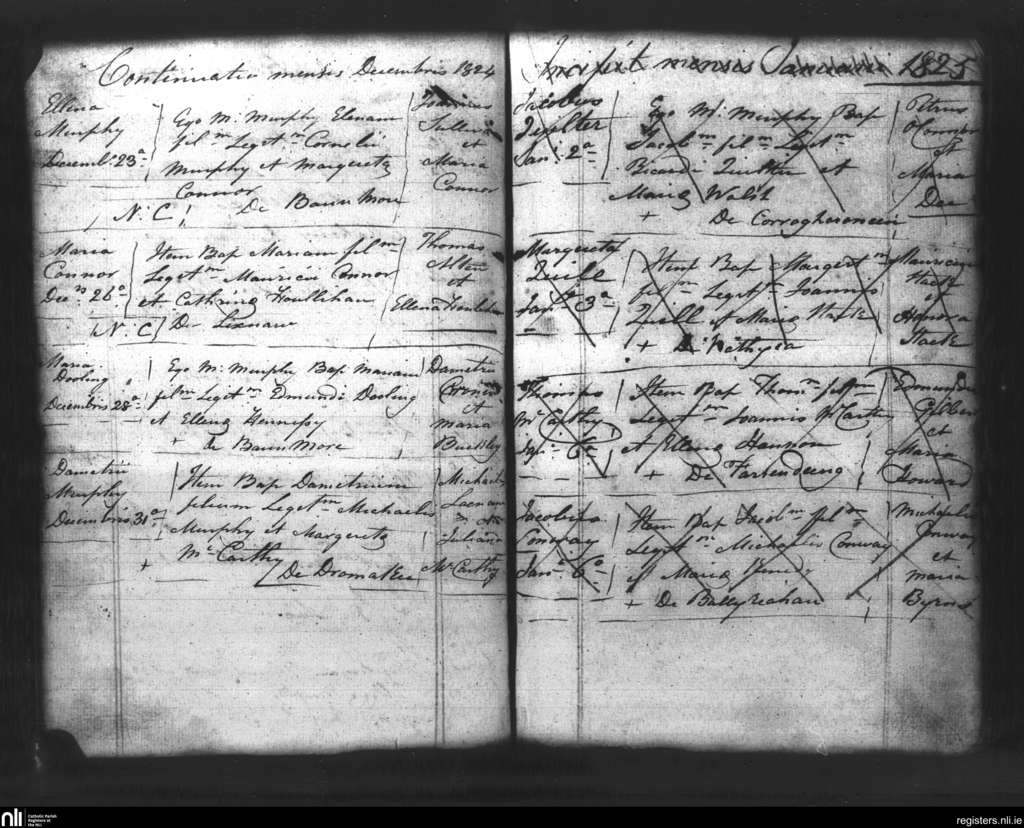 Continuatio mensis Decembris 1824
Ellena
Murphy
Decemb. 23a
Ego M. Murphy Elenam
fil m Legit m Cornelii
Murphy et Margereta
Connor
N. C De Baun More
Joannes
Sullivan
et
Maria
Connor
Maria
Connor
Dec 26a
Item Bap Mariam fil m
Legit m Mauricii Connor
et Cathrina Houllihan
N. C De Lixnaw
Thomas
Allen
et
Ellena Houlihan
Maria
Dorling
Decembris 28a
Ego M. Murphy Bap Mariam
fil m Legit m Edmundi Dorling
et Ellena Hennessy
+ De Baun More
Dametri
et
Maria
Buckley
Dametrii
Murphy
Decembris 31a
Item Bap Dametrium
filium Legit m Michaelis
Murphy et Margereta
Mc Carthy
+ De Dromakee
Michaelis
et
Juliana
McCarthy
Incipit mensis Januarii 1825
Jacobus
Jan. 2a
Ego M. Murphy Bap
Jacob m fil m Legit m
Ricardi et
Maria Walsh
+ De
Petrus
O Connor
et
Maria
Dee
Margereta
Quill
Jan. 3a
Item Bap Margeret m
fil m Legit m Joannis
Quill et Maria Stack
+ De
Mauricius
Stack
et
Honora
Stack
Thomas
Mc Carthy
Jan. 6a
Item Bap Thom m fil m
Legit m Joannis McCarthy
et Ellena Hanlon
+ De
Edmundus
Gilbert
et
Maria
Howard
Jacobus
Conway
Jan. 6a
Item Bap Jacob m fil m
Legit m Michaelis Conway
et Maria
+ De Ballyreahan
Michaelis
Conway
et
Maria
Byrns
nli
Catholic Parish
Registers at
the NLI
registers.nli.ie